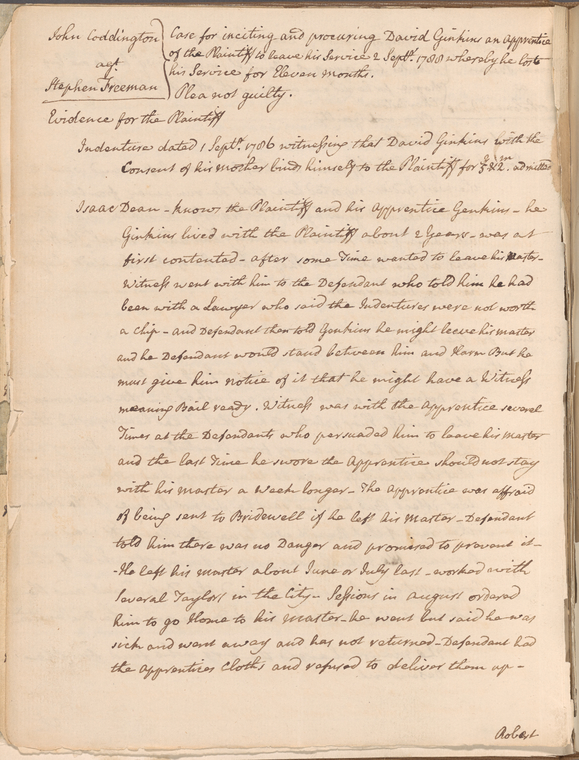 John Coddington
agt
Stephen Freeman
Case for inciting and procuring David Ginkins an Apprentice
of the Plaintiff to leave his Service 2 Septr. 1788 whereby he lost
his Service for Eleven months.
Plea not guilty.
Evidence for the Plaintiff
Indenture dated 1 Septr. 1786 witnessing that David Ginkins with the
Consent of his Mother binds himself to the Plaintiff for 3y & 2m. admitted
Isaac Dean - knows the Plaintiff and his Apprentice Genkins - he
Ginkins lived with the Plaintiff about 2 Years - was at
first contented - after some Time wanted to leave his Master -
Witness went with him to the Defendant who told him he had
been with a Lawyer who said the Indentures were not worth
a Chip - and Defendant then told Genkins he might leave his Master
and he Defendant would stand between him and Harm But he
must give him notice of it that he might have a Witness
meaning Bail ready. Witness was with the Apprentice several
Times at the Defendants who persuaded him to leave his Master
and the last Time he swore the Apprentice should not stay
with his Master a Week longer - The Apprentice was affraid
of being sent to Bridewell if he left his Master - Defendant
told him there was no Danger and promised to prevent it -
- He left his Master about June or July last - worked with
several Taylors in the City - Sessions in August ordered
him to go Home to his Master - he went but said he was
sick and went away and has not returned - Defendant had
the Apprentices Cloths and refused to deliver them up -
Robert